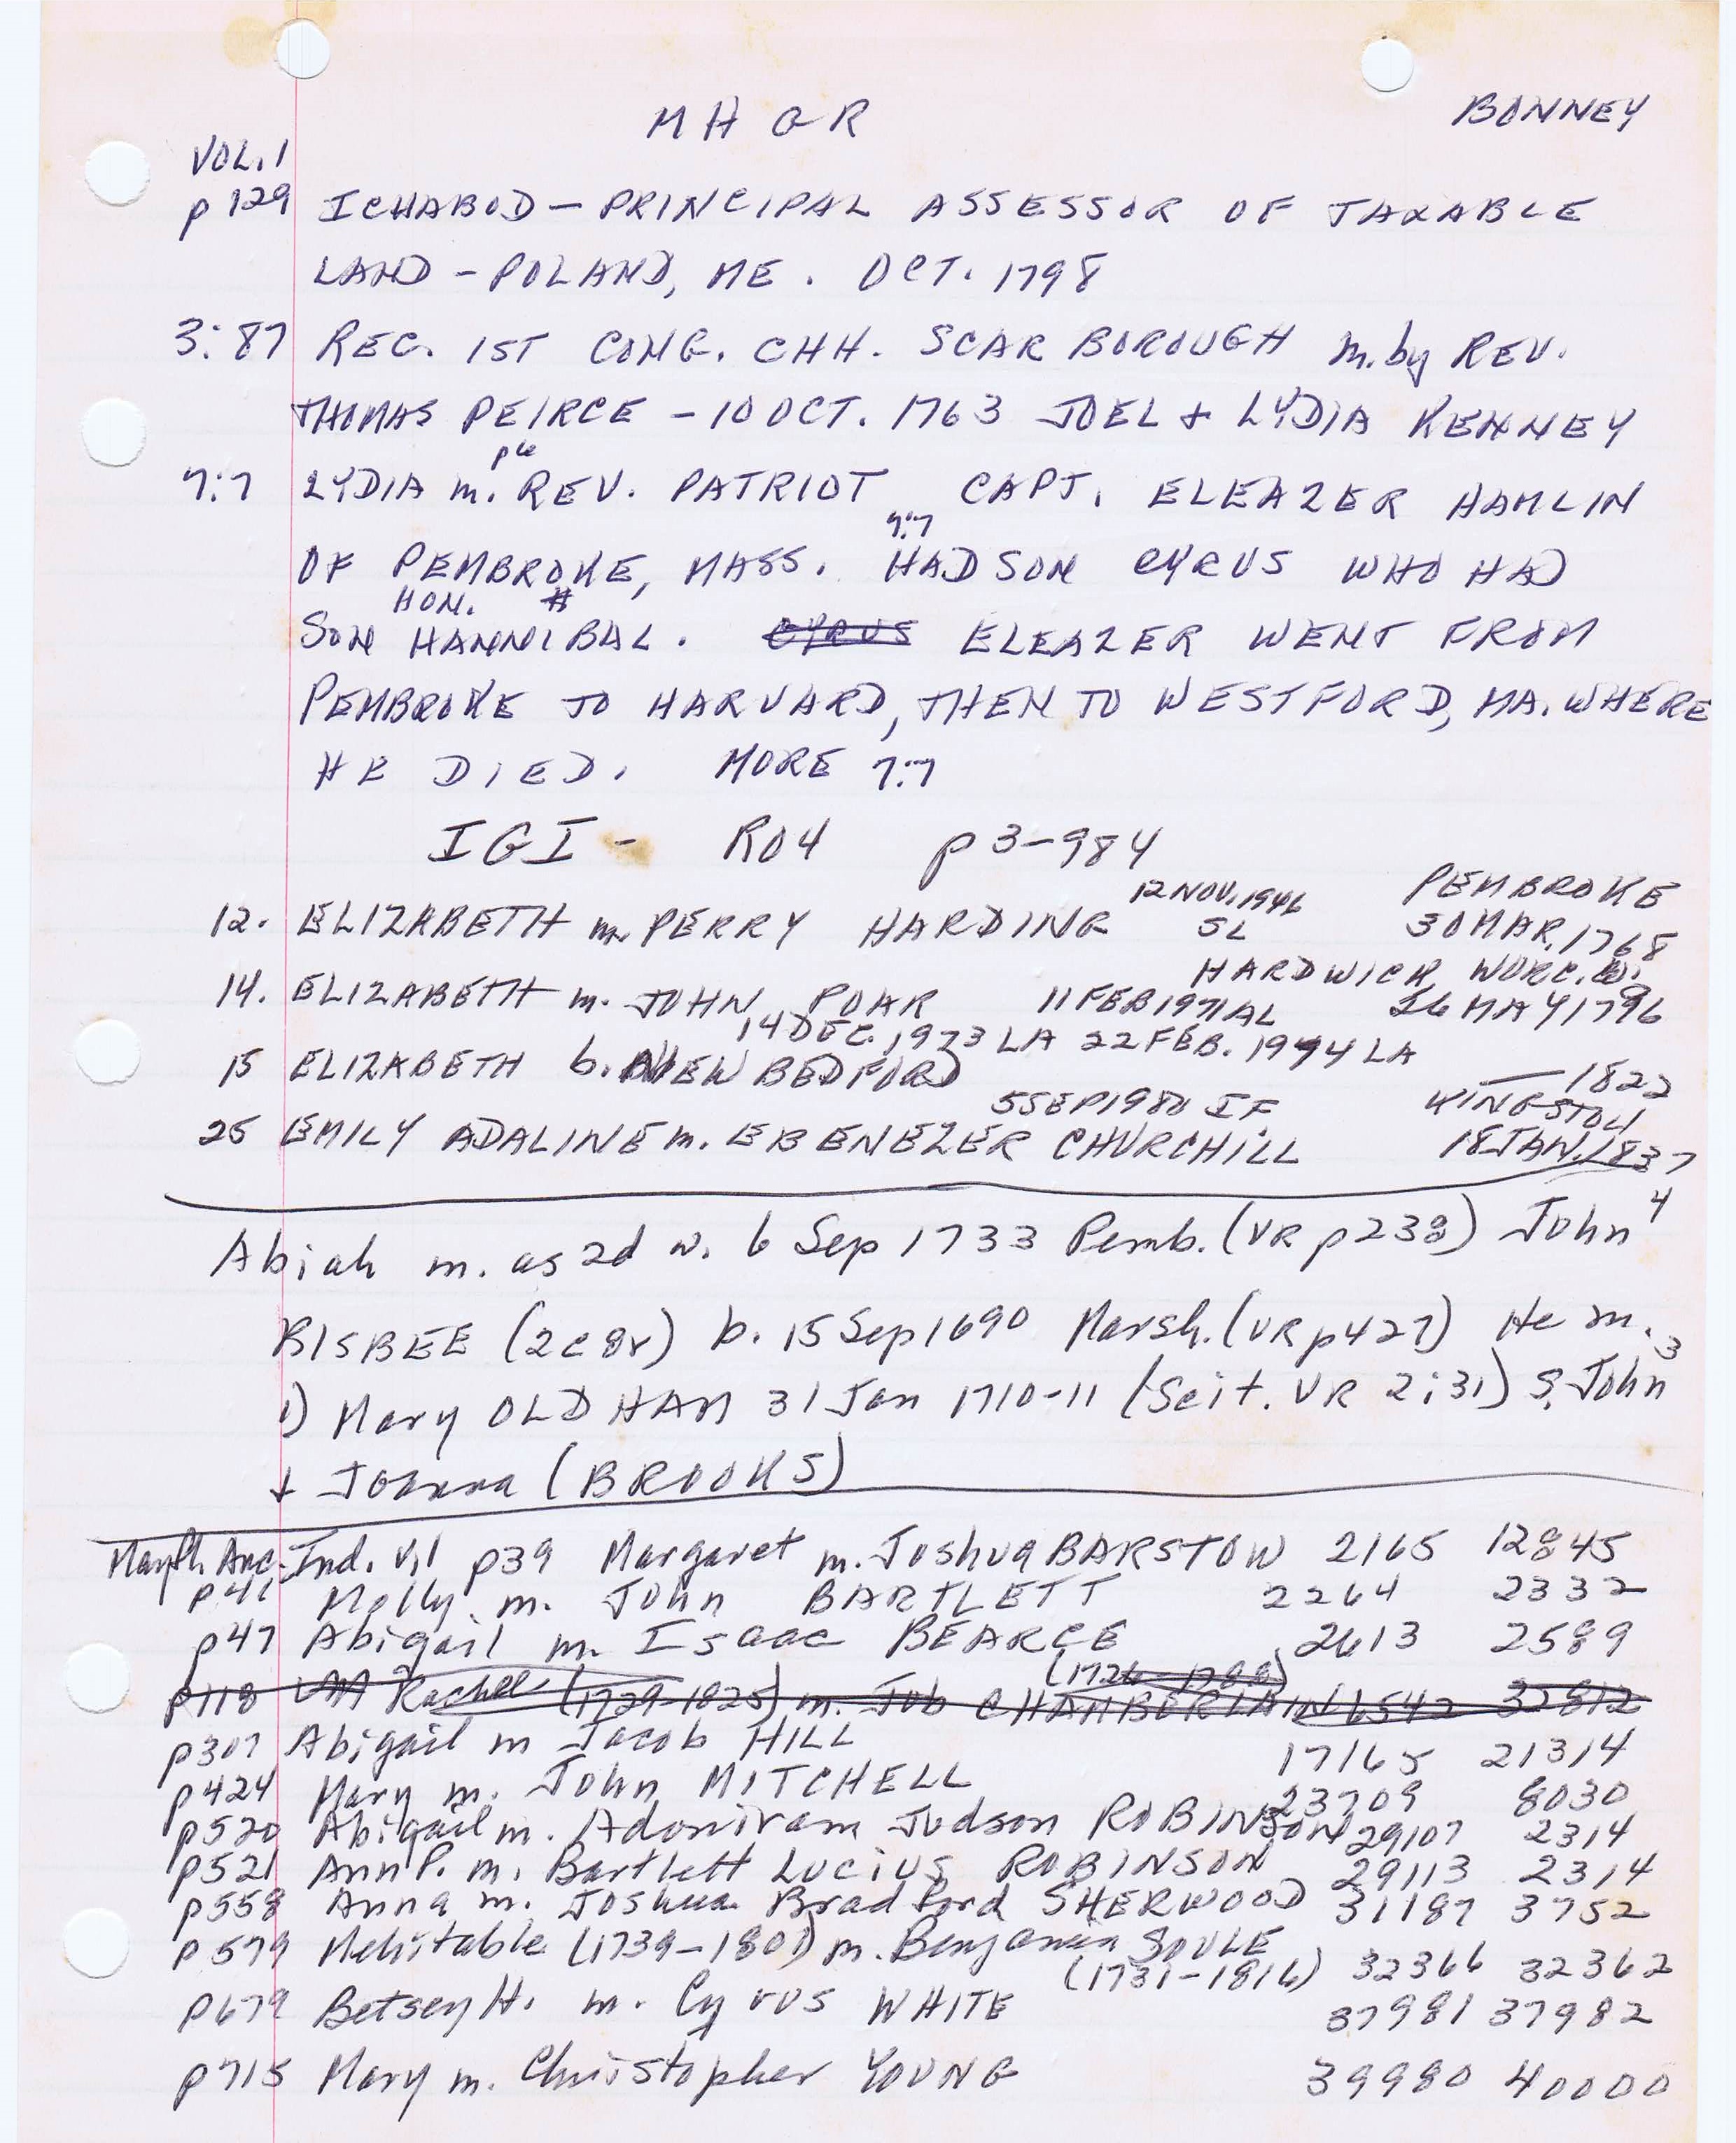 M H G R
BONNEY
VOL. 1
p 129 ICHABOD - PRINCIPAL ASSESSOR OF TAXABLE
LAND - POLAND, ME. OCT. 1798
3:87 REC. 1ST CONG. CHH. SCARBOROUGH m. by REV.
THOMAS PEIRCE - 10 OCT. 1763 JOEL + LYDIA KENNEY
7:7 LYDIA m. REV. PATRIOT CAPT. ELEAZER HAMLIN
9:7
OF PEMBROKE, MASS. HAD SON CYRUS WHO HAD
HON. H
SON HANNIBAL. CYRUS ELEAZER WENT FROM
PEMBROKE TO HARVARD, THEN TO WESTFORD, MA. WHERE
HE DIED. MORE 7:7
IGI - R04 p 3-984
12 NOV. 1946 PEMBROKE
12. ELIZABETH m. PERRY HARDING SL 30 MAR. 1768
HARDWICK WORC. Co.
14. ELIZABETH m. JOHN POAR 11 FEB 1971 AL 26 MAY 1796
14 DEC. 1973 LA 22 FEB. 1994 LA
15 ELIZABETH b. NEW BEDFORD — 1822
5 SEP 1980 IF KINGSTON
25 EMILY ADALINE m. EBENEZER CHURCHILL 18 JAN. 1837
Abiah m. as 2d w. 6 Sep 1733 Pemb. (VR p 238) John 4
BISBEE (2c8r) b. 15 Sep 1690 Marsh. (VR p 427) He m.
1) Mary OLDHAM 31 Jan 1710-11 (Scit. VR 2:31) S. John 3
+ Joanna (BROOKS)
Mayfl. Anc. Ind. V.1 p39 Margaret m. Joshua BARSTOW 2165 12845
p41 Molly m. John BARTLETT 2264 2332
p47 Abigail m. Isaac BEARCE 2613 2589
(1726-1788)
p118 Rachel (1729-1825) m. Job CHAMBERLAIN 6542 32812
p307 Abigail m Jacob HILL 17165 21314
p424 Mary m. John MITCHELL 23709 8030
p520 Abigail m. Adoniram Judson ROBINSON 29107 2314
p521 Ann P. m. Bartlett Lucius ROBINSON 29113 2314
p558 Anna m. Joshua Bradford SHERWOOD 31187 3752
p579 Mehitable (1739-1801) m. Benjamin SOULE
(1731-1816) 32366 32362
p679 Betsey H. m. Cyrus WHITE 37981 37982
p715 Mary m. Christopher YOUNG 39980 40000